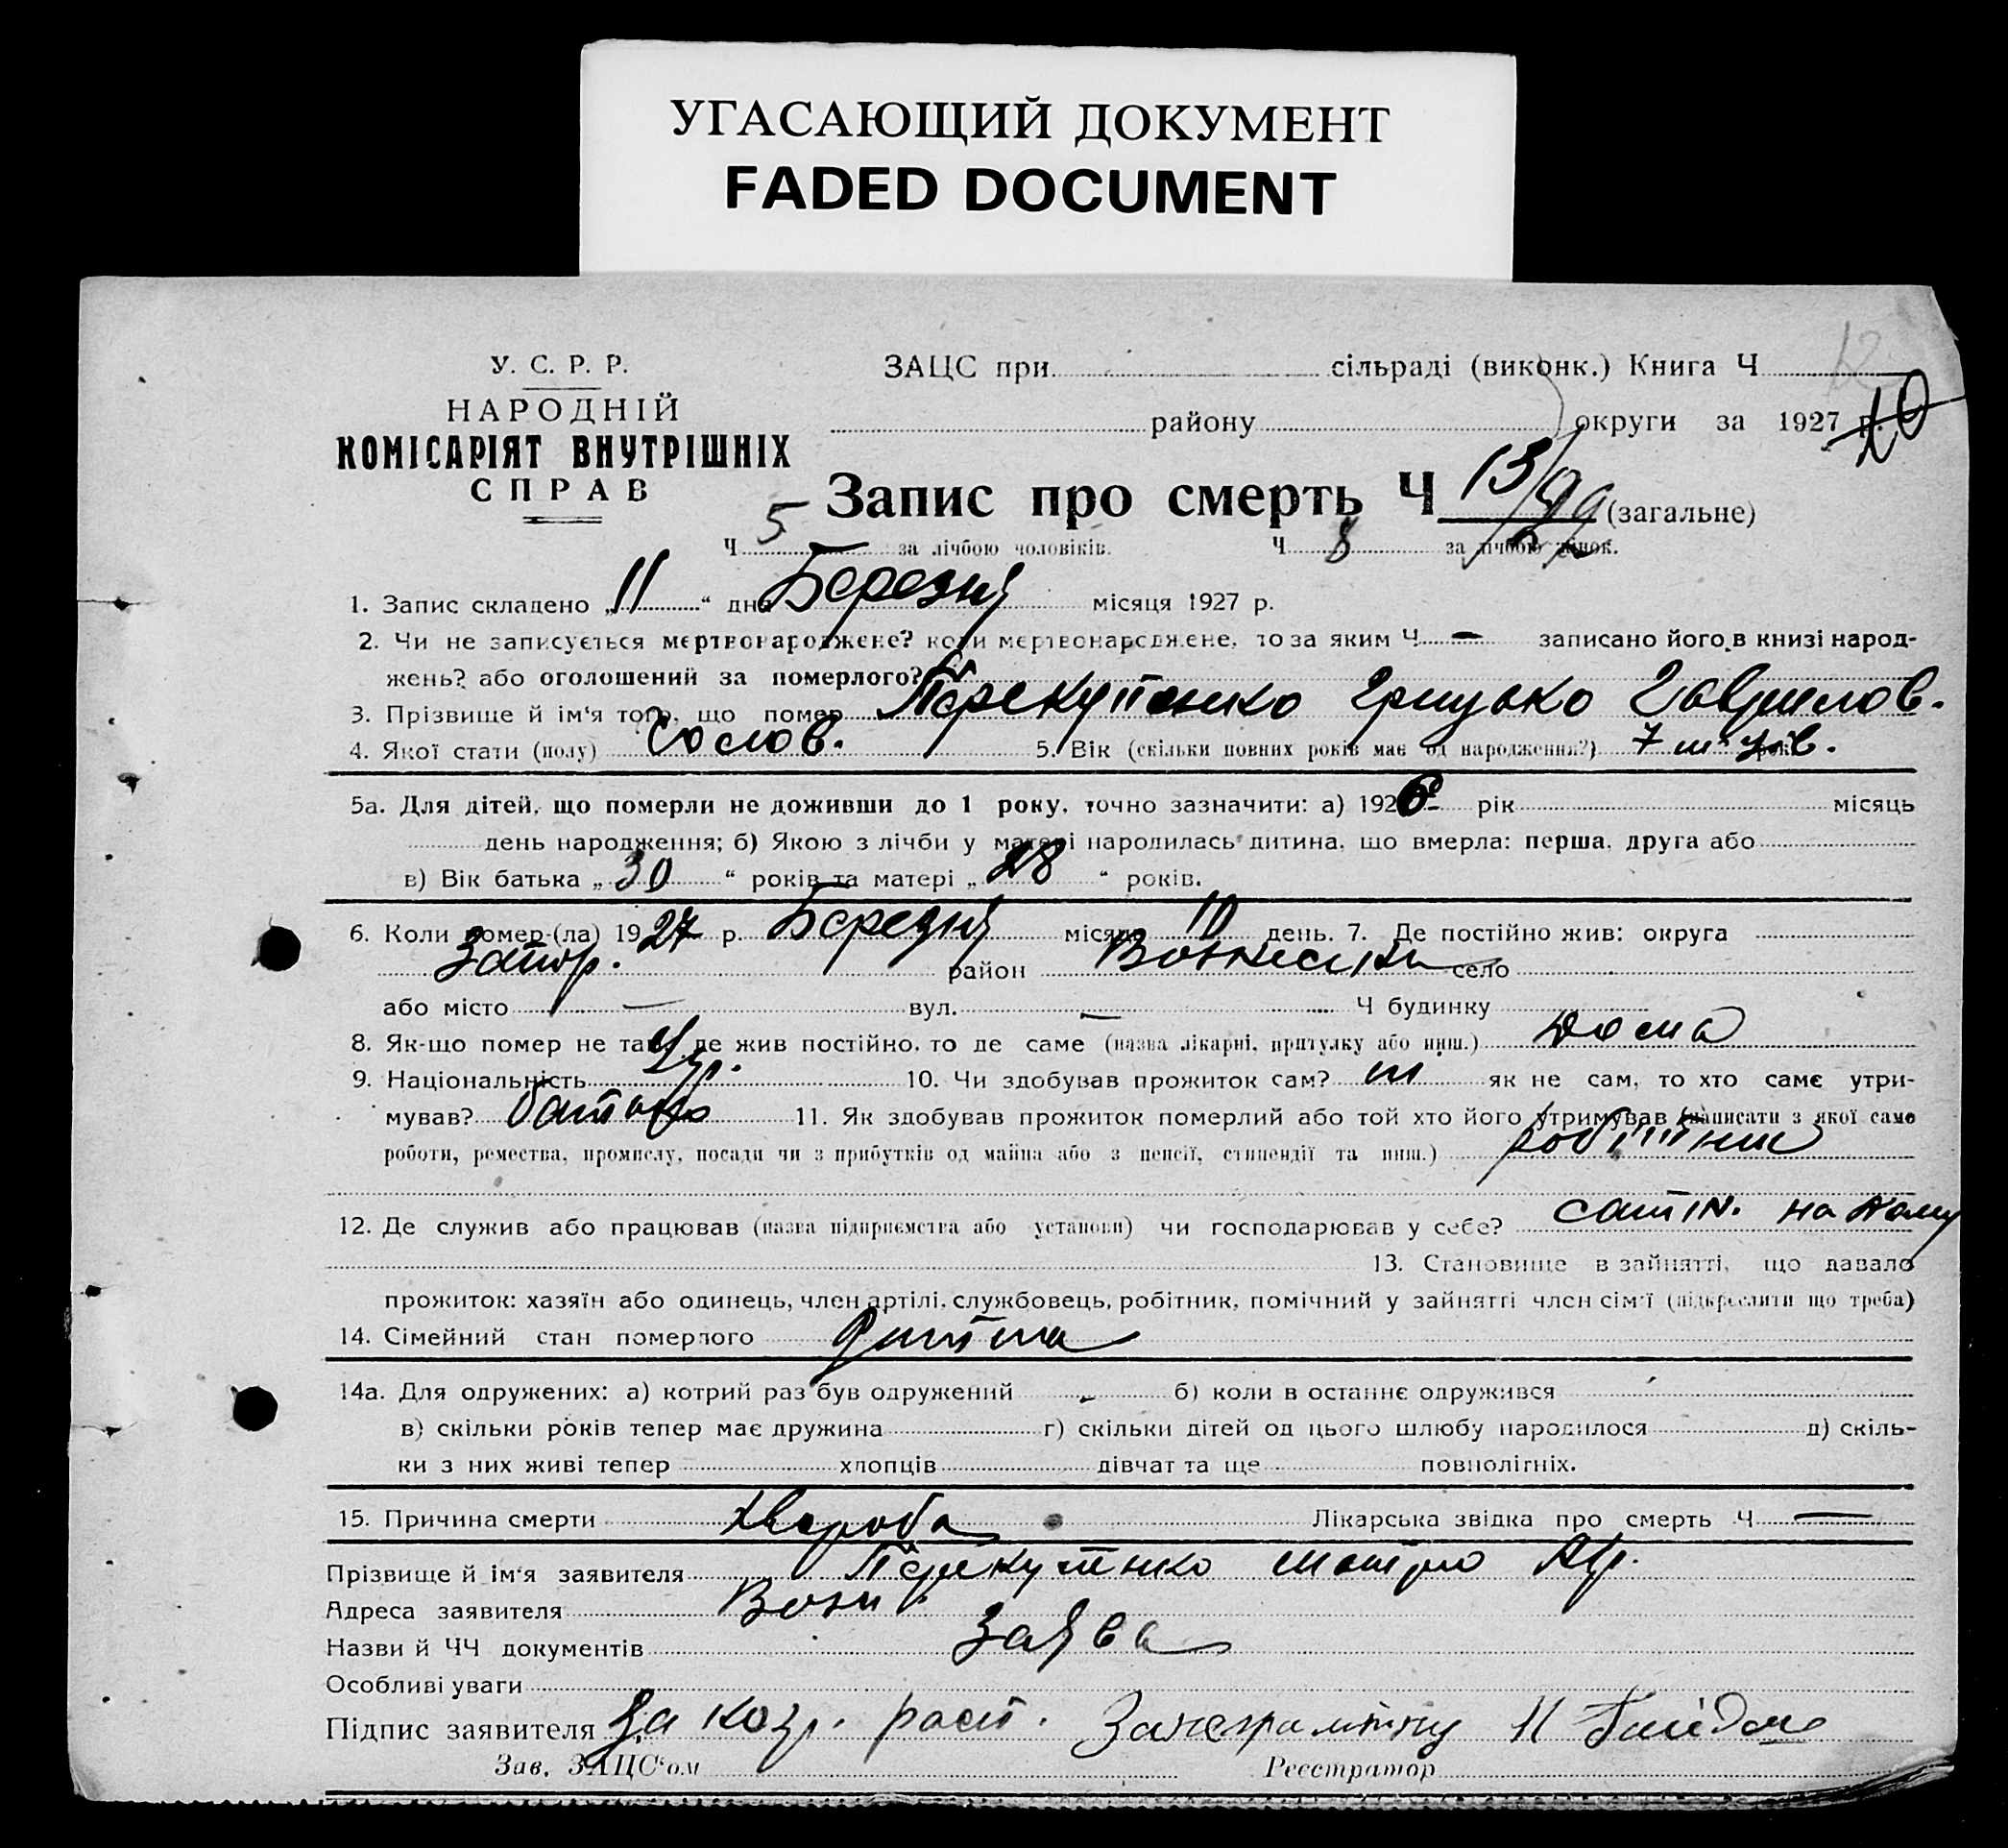 УГАСАЮЩИЙ ДОКУМЕНТ
FADED DOCUMENT
У. С. Р. Р.
НАРОДНІЙ
КОМІСАРІЯТ ВНУТРІШНІХ
СПРАВ
ЗАЦС при сільраді (виконк.) Книга Ч 12
району округи за 1927 р. 10
Запис про смерть Ч 13/ (загальне)
Ч 5 за лічбою чоловіків. Ч 8 за лічбою жінок.
1. Запис складено „ 11 “ дня Березня місяця 1927 р.
2. Чи не записується мертвонароджене? коли мертвонароджене, то за яким Ч — записано його в книзі народ-
жень? або оголошений за померлого?
3. Прізвище й ім'я того, що помер Перекупенко Грицько Гаврилов.
4. Якої стати (полу) Солов. 5. Вік (скільки повних років має од народження?) 7 років.
5а. Для дітей, що померли не доживши до 1 року, точно зазначити: а) 1926 рік місяць
день народження; б) Якою з лічби у матері народилась дитина, що вмерла: перша, друга або
в) Вік батька „ 30 “ років та матері „ 28 “ років.
6. Коли помер-(ла) 1927 р. Березня місяця 10 день. 7. Де постійно жив: округа
Запор. район Вознесенка село
або місто — вул. — Ч будинку
8. Як-що помер не там, де жив постійно, то де саме (назва лікарні, притулку або инш.) дома
9. Національність Укр. 10. Чи здобував прожиток сам? ні як не сам, то хто саме утри-
мував? батько 11. Як здобував прожиток померлий або той хто його утримував (написати з якої саме
роботи, ремества, промислу, посади чи з прибутків од майна або з пенсії, стипендії та инш.) робітник
12. Де служив або працював (назва підприємства або установи) чи господарював у себе? на
13. Становище в зайнятті, що давало
прожиток: хазяїн або одинець, член артілі, службовець, робітник, помічний у зайнятті член сім'ї (підкреслити що треба)
14. Сімейний стан померлого дитина
14а. Для одружених: а) котрий раз був одружений - б) коли в останнє одружився
в) скільки років тепер має дружина г) скільки дітей од цього шлюбу народилося д) скіль-
ки з них живі тепер хлопців дівчат та ще повнолітніх.
15. Причина смерти хвороба Лікарська звідка про смерть Ч —
Прізвище й ім'я заявителя Перекупенко
Адреса заявителя Возн.
Назви й ЧЧ документів Заява
Особливі уваги
Підпис заявителя За
Зав. ЗАЦС'ом Реєстратор